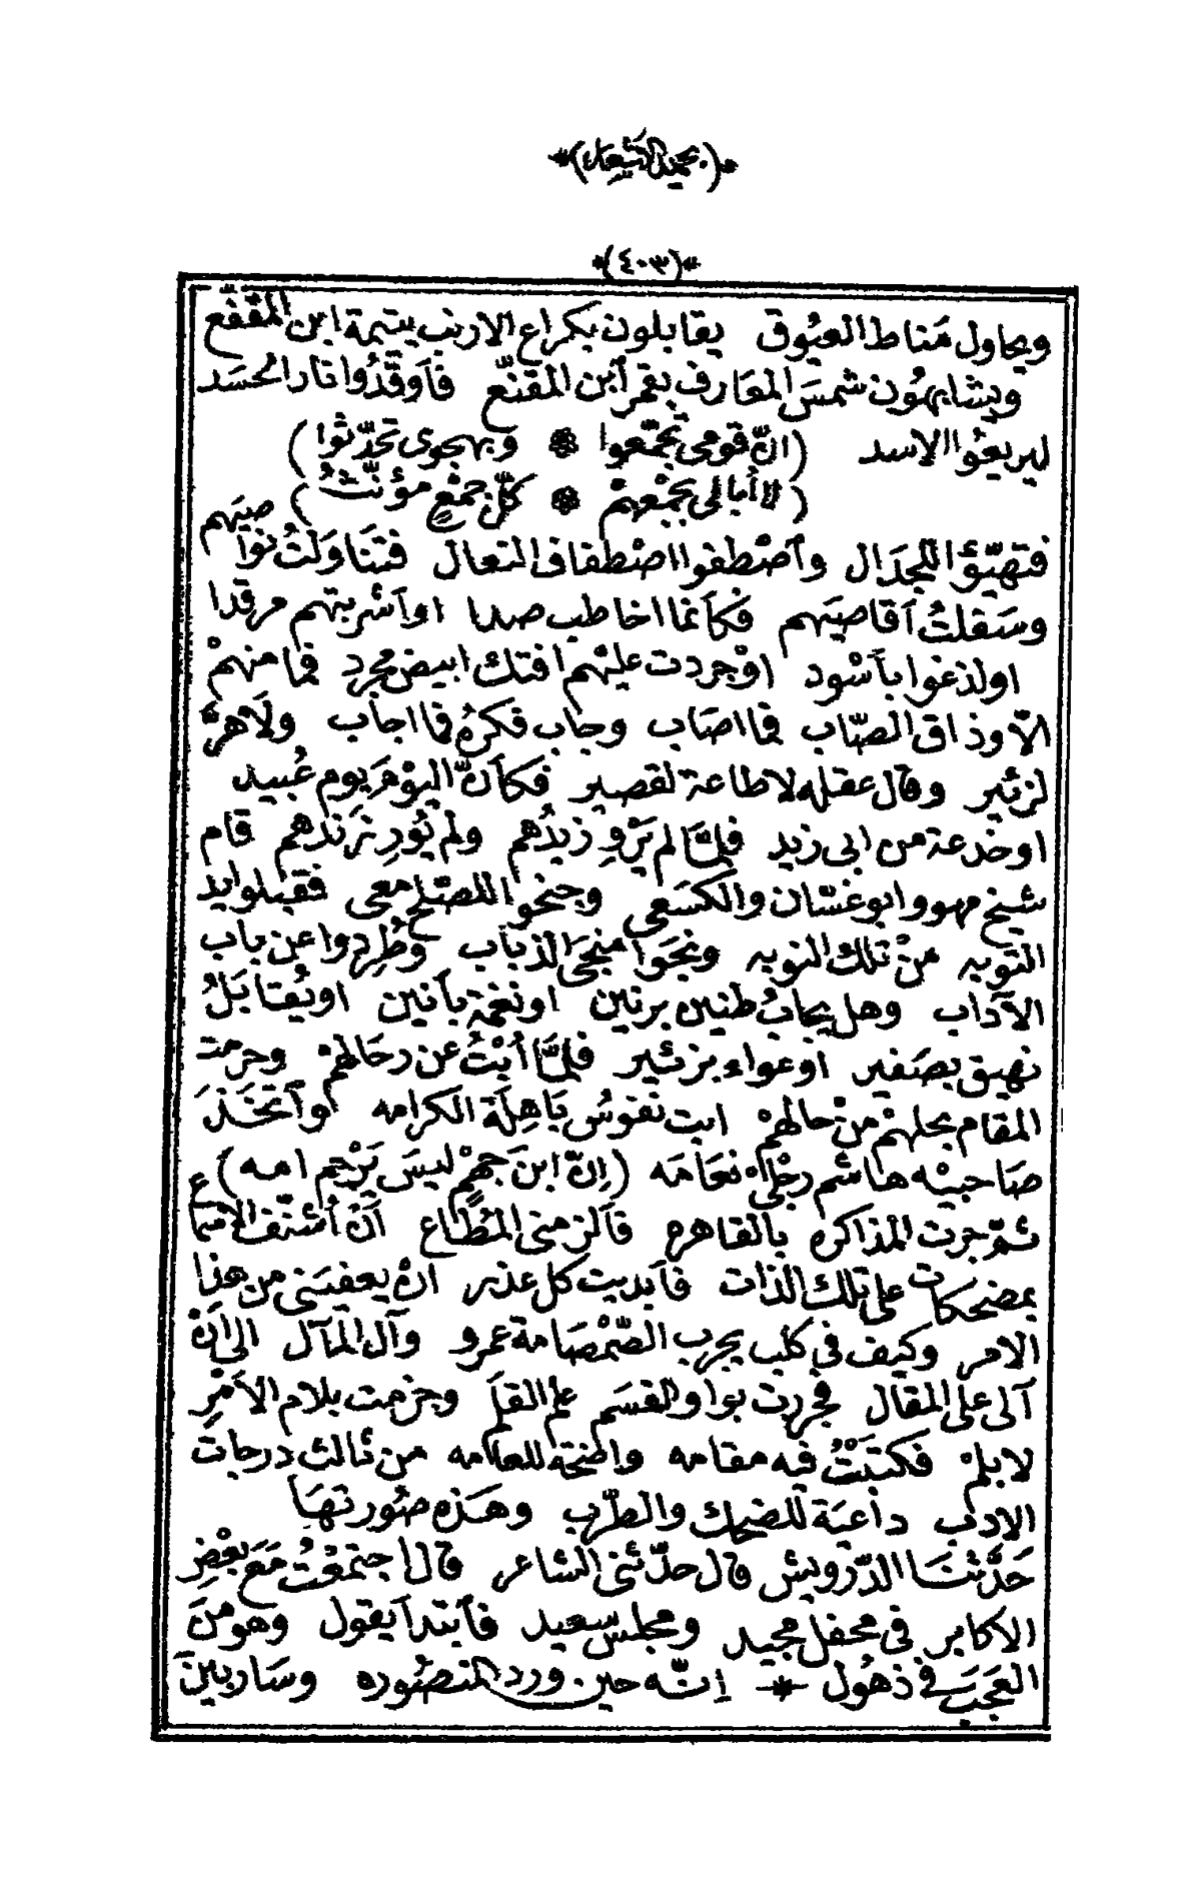 *(بحميد الاشعار)*
*(٤٠٣)*
ويحاول مَناط العيُوق يقابلون بكراع الارنب يتيمة ابن المقفّع
ويشابهُون شمسَ المعارف بقمر ٱبن المقنّع فأوقدُوا نار الحسَد
ليريعُوا الاسد (انّ قومى تجمّعوا * وبهجوى تحدّثوا)
(لا أبالى بجمْعهمْ * كلّ جمْعٍ مؤنّثُ)
فتهيّؤا للجدَال وٱصْطفوا اصْطفاف النعال فتنَاوَلتُ نواصيَهم
وسَفلتُ أقاصيَهم فكأنما اخاطب صلدا او أشربتهم مرقدا
اولذغوا بأسْود اوْجردت عليْهم افتك ابيض مجرد فما منهمْ
الّا وذاق الصّاب فما اصَاب وجاب فكرُه فما اجاب ولَا هرَّ
لزئير وقال عقله لا طاعة لقصير فكأنّ اليوْمَ يوم عُبيد
اوخدعة من ابى زيد فلمَّا لم يَرْوِ زيدُهم ولم يُورِ زَندهم قام
شيخ مهو وابوغسّان والكسَعى وجنحوا للصّلح معى فقبلوا يد
التوبه منْ تلك النوبه ونجَوا منجَى الذباب وطُرِدوا عن باب
الآداب وهل يجابُ طنين برنين اونغمة بأنين اويُقابَلُ
نهيق بصَفير اوعواء بزئير فلمَّا أبْتُ عن رحَالهمْ وحرمت
المقام بحلهمْ منْ حالهمْ ابت نفوسُ بَاهِلَة الكرامه اوٱتخَذَ
صَاحبيْه هاشم رجْلىْ نعَامَه (إنّ ابنَ جهْمٍ ليسَ يَرْحم امه)
ثمّ جرت المذاكره بالقاهره فألزمنى المُطَاع أنْ أشنّف الاسماع
بمضحكات على تلك الذات فأبديت كل عذر انْ يعفيَنى من هذا
الامر وكيف فى كلب يجرب الصّمْصَامة عمرو وآل المآل الى أنْ
آلى على المقال فجررت بواو القسَم علم القلَم وجزمت بلام الأمْرِ
لابلمْ فكتبْتُ فيه مقامه واضحَة للعلامه من ثالث درجات
الادب داعيَة للضحك والطّرب وهَذه صُورتهَا
حَدَّثنَا الدّرويش قال حدّثنى الشاعر قال اجتمعْتُ مَعَ بعْضِ
الاكابر فى محفل مجيد ومجلس سعيد فٱبتدأ يقول وهو منَ
العَجَبَ فى ذهُول * إنّه حين ورد المنصُوره وسَار بينَ